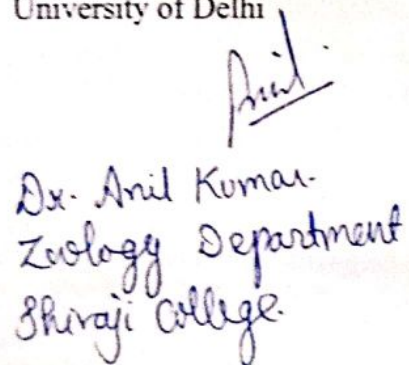 University of Delhi
Anil.
Dr. Anil Kumar.
Zoology Department
Shivaji College.